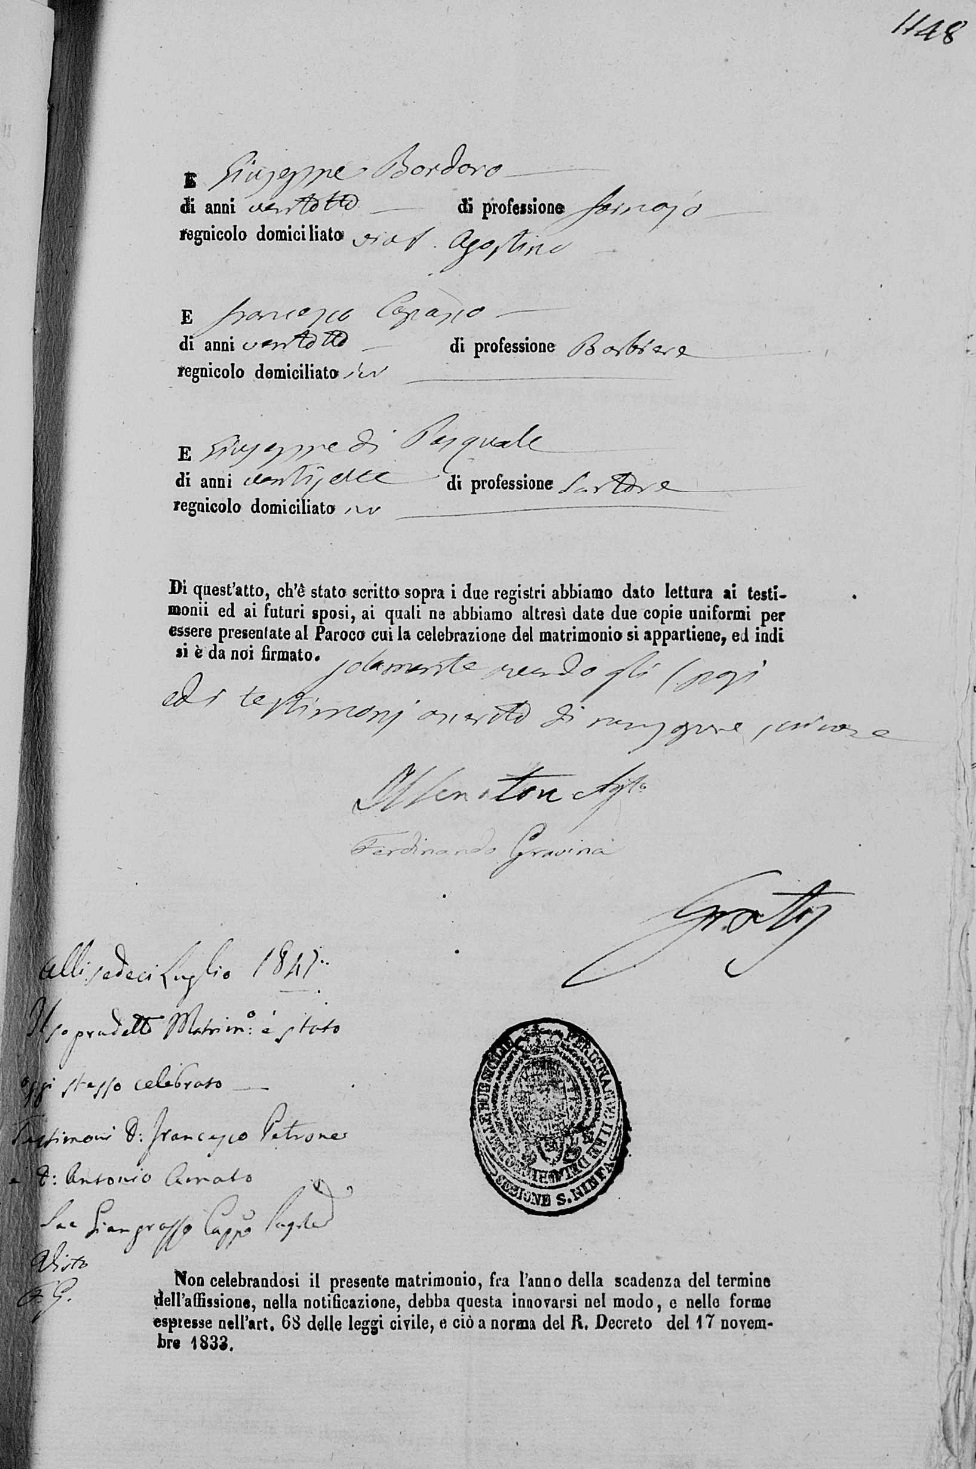 1148
E Giuseppe Bordoro
di anni ventotto di professione Fornajo
regnicolo domiciliato S. Agostino
E Francesco
di anni ventotto di professione Barbiere
regnicolo domiciliato ivi
E Giuseppe di Pasquale
di anni ventisette di professione Sartore
regnicolo domiciliato ivi
Di quest'atto, ch'è stato scritto sopra i due registri abbiamo dato lettura ai testi-
monii ed ai futuri sposi, ai quali ne abbiamo altresì date due copie uniformi per
essere presentate al Paroco cui la celebrazione del matrimonio si appartiene, ed indi
si è da noi firmato. solamente avendo gli Sposi
ed i testimonj asserito di non sapere scrivere
Il Senatore
Ferdinando Gravina
Alli sedeci Luglio 1841
Il sopradetto Matrim.o è stato
oggi stesso celebrato
Testimoni D: Francesco Petrone
e D: Antonio Amato
Sac Giangrasso
Visto
Non celebrandosi il presente matrimonio, fra l'anno della scadenza del termine
dell'affissione, nella notificazione, debba questa innovarsi nel modo, e nelle forme
espresse nell'art. 68 delle leggi civile, e ciò a norma del R. Decreto del 17 novem-
bre 1833.